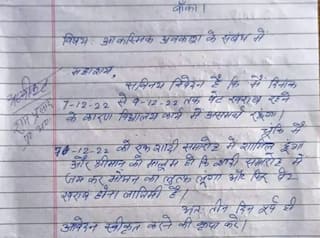 बाँका।
विषय:- आकस्मिक अवकाश के संबंध में
महाशय,
सविनय निवेदन है कि मैं दिनांक
7-12-22 से 9-12-22 तक पेट खराब रहने
के कारण विद्यालय कार्य में असमर्थ रहूँगा।
चूंकि मैं
-12-22 को एक शादी समारोह में शामिल हूँगा
और श्रीमान को मालूम हो कि शादी समारोह में
जम कर भोजन का लुत्फ लूंगा और फिर पेट
खराब होना लाजिमी है।
अतः तीन दिन पूर्व ही
आवेदन स्वीकृत करने की कृपा करें।